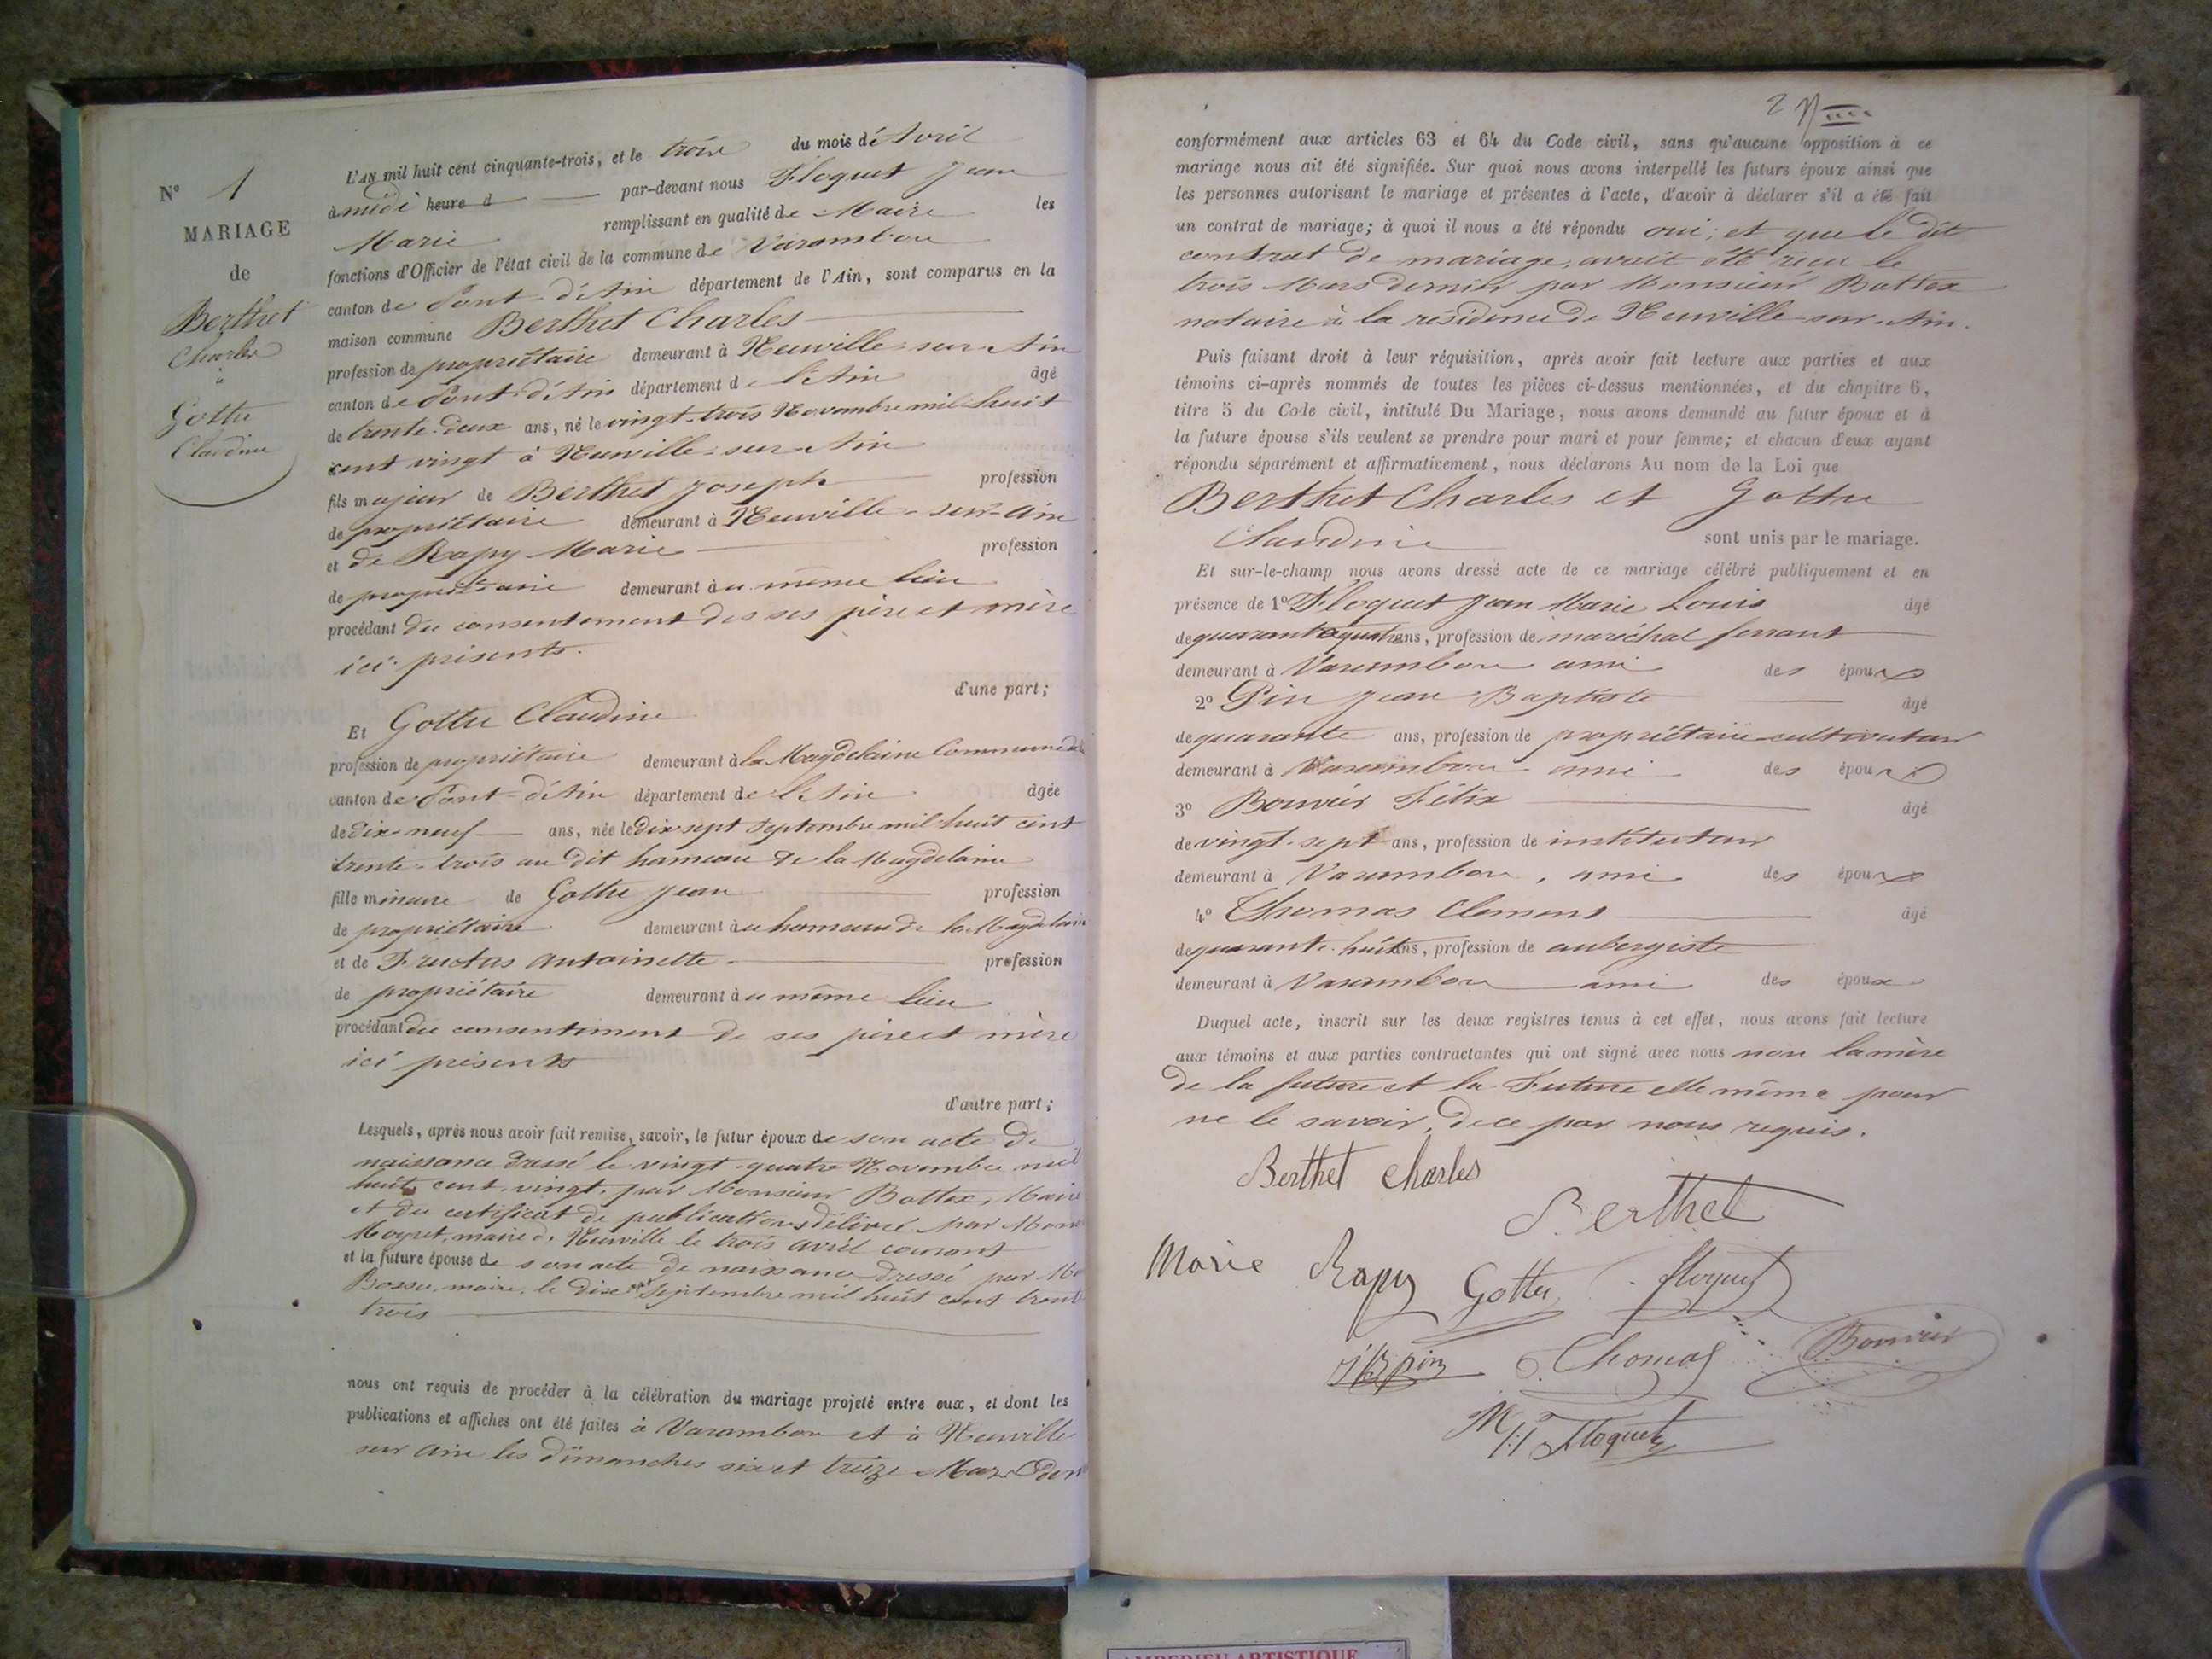 N° 1
MARIAGE
de
Berthet
Charles
à
Gottu
Claudine
L'AN mil huit cent cinquante-trois, et le trois du mois d'Avril
à midi heure d par-devant nous Floquet Jean
Marie remplissant en qualité de Maire les
fonctions d'Officier de l'état civil de la commune de Varambon
canton de Pont-d'Ain département de l'Ain, sont comparus en la
maison commune Berthet Charles
profession de propriétaire demeurant à Neuville-sur-Ain
canton de Pont-d'Ain département de l'Ain âgé
de trente-deux ans, né le vingt-trois Novembre mil huit
cent vingt à Neuville-sur-Ain
fils majeur de Berthet Joseph profession
de propriétaire demeurant à Neuville-sur-Ain
et de Rapy Marie profession
de propriétaire demeurant au même lieu
procédant du consentement des ses père et mère
ici présents.
d'une part;
Et Gottu Claudine
profession de propriétaire demeurant à la Magdelaine Commune de
canton de Pont-d'Ain département de l'Ain âgée
de dix-neuf ans, née le dix sept Septembre mil huit cent
trente-trois au dit hameau de la Magdelaine
fille mineure de Gottu Jean profession
de propriétaire demeurant au hameau de la Magdelaine
et de Fructus Antoinette profession
de propriétaire demeurant au même lieu
procédant du consentiment de ses père et mère
ici présents
d'autre part;
Lesquels, après nous avoir fait remise, savoir, le futur époux de son acte de
naissance dressé le vingt-quatre Novembre mil
huit cent vingt, par Monsieur Bottex, Maire
et du certificat de publications délivré par Mons
Moyret, maire de Neuville le trois avril courant
et la future épouse de son acte de naissance dressé par Mr
Bossu, maire, le dix sept Septembre mil huit cent trente
trois
nous ont requis de procéder à la célébration du mariage projeté entre eux, et dont les
publications et affiches ont été faites à Varambon et à Neuville
sur Ain les dimanches six et treize Mars
2
conformément aux articles 63 et 64 du Code civil, sans qu'aucune opposition à ce
mariage nous ait été signifiée. Sur quoi nous avons interpellé les futurs époux ainsi que
les personnes autorisant le mariage et présentes à l'acte, d'avoir à déclarer s'il a été fait
un contrat de mariage; à quoi il nous a été répondu oui; et que le dit
contrat de mariage, avait été reçu le
trois Mars dernier par Monsieur Bottex
notaire à la résidence de Neuville-sur-Ain.
Puis faisant droit à leur réquisition, après avoir fait lecture aux parties et aux
témoins ci-après nommés de toutes les pièces ci-dessus mentionnées, et du chapitre 6,
titre 5 du Code civil, intitulé Du Mariage, nous avons demandé au futur époux et à
la future épouse s'ils veulent se prendre pour mari et pour femme; et chacun d'eux ayant
répondu séparément et affirmativement, nous déclarons Au nom de la Loi que
Berthet Charles et Gottu
Claudine sont unis par le mariage.
Et sur-le-champ nous avons dressé acte de ce mariage célébré publiquement et en
présence de 1° Floquet Jean Marie Louis âgé
de quarante quatre ans, profession de maréchal ferrant
demeurant à Varambon ami des époux
2° Pin Jean Baptiste âgé
de quarante ans, profession de propriétaire cultivateur
demeurant à Varambon ami des époux
3° Bouvier Félix âgé
de vingt-sept ans, profession de instituteur
demeurant à Varambon, ami des époux
4° Thomas Clement âgé
de quarante-huit ans, profession de aubergiste
demeurant à Varambon ami des époux
Duquel acte, inscrit sur les deux registres tenus à cet effet, nous avons fait lecture
aux témoins et aux parties contractantes qui ont signé avec nous non la mère
de la future et la Future elle même pour
ne le savoir, de ce par nous requis.
Berthet Charles
Berthet
Marie Rapy Gottu floquet
Pin Thomas Bouvier
Floquet
AMBERIEU ARTISTIQUE